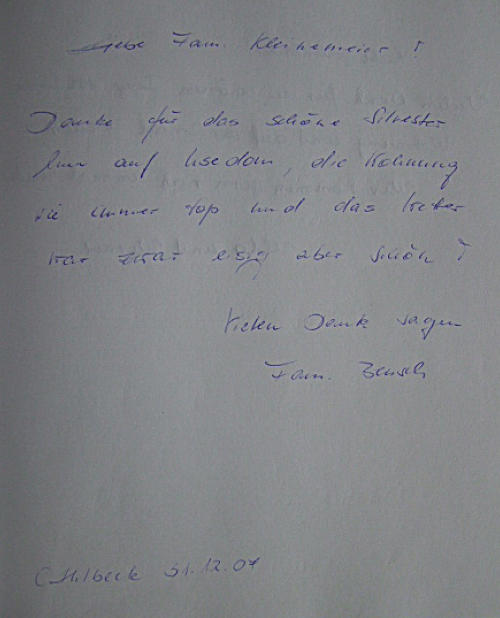 Liebe Fam. Kleinemeier!
Danke für das schöne Silvester
hier auf Usedom, die Wohnung
wie immer top und das Wetter
war zwar eisig aber schön!
Vielen Dank sagen
Fam. Bensch
C. Hilbeck 31.12.07